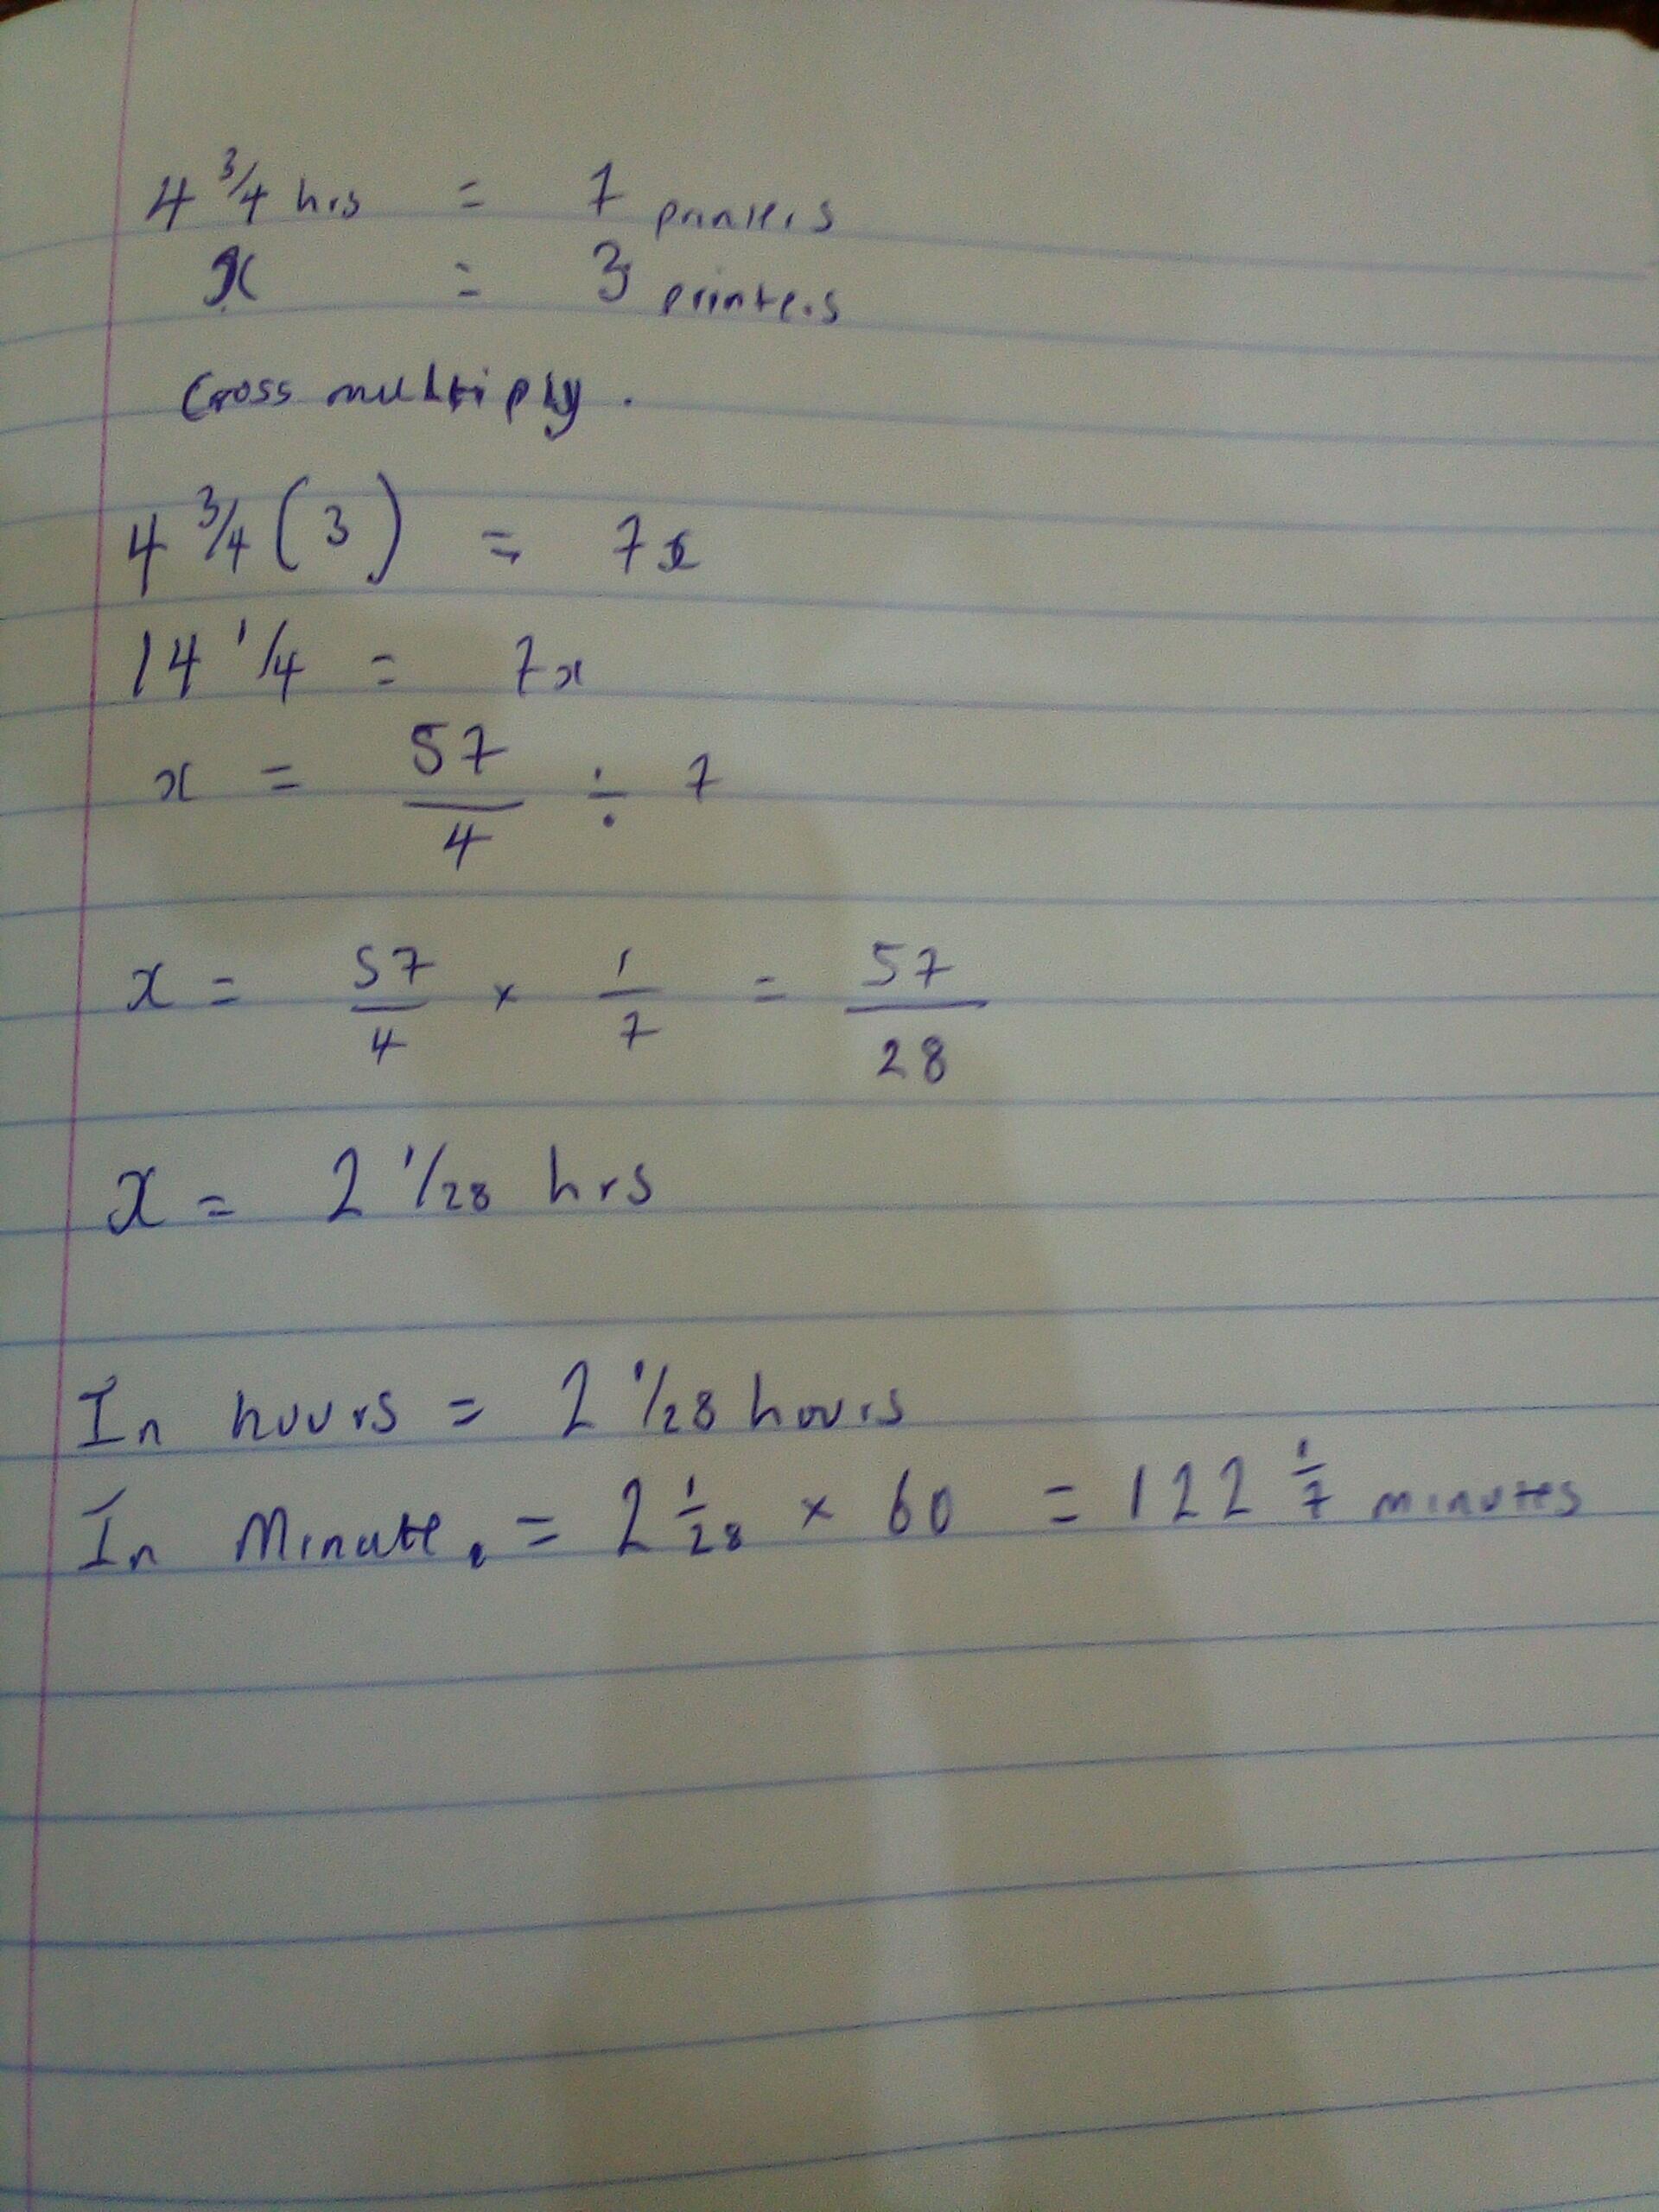 4 3/4 hrs = 7 printers
x = 3 printers
Cross multiply.
4 3/4 (3) = 7x
14 1/4 = 7x
x = 57/4 ÷ 7
x = 57/4 × 1/7 = 57/28
x = 2 1/28 hrs
In hours = 2 1/28 hours
In Minutes = 2 1/28 × 60 = 122 1/7 minutes